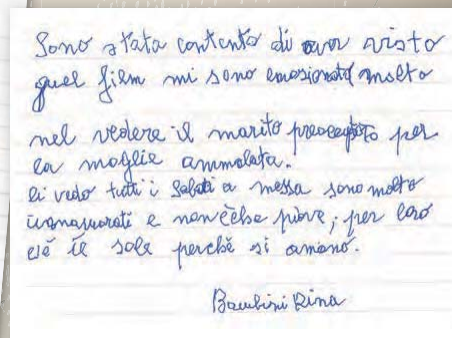 Sono stata contenta di aver visto
quel film mi sono emosionata molto
nel vedere il marito preocupato per
la moglie ammalata.
li vedo tutti i sabati a messa sono molto
innamorati e non c'è che piove; per loro
c'è il sole perchè si amano.
Bambini Rina